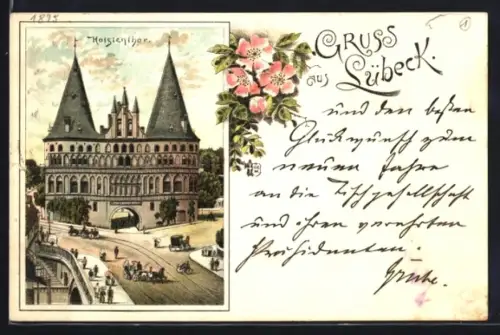 1895
Holstenthor.
1
GRUSS
aus Lübeck.
und den besten
Glückwunsch zum
neuen Jahre
an die Tischgesellschaft
und ihren verehrten
Präsidenten.